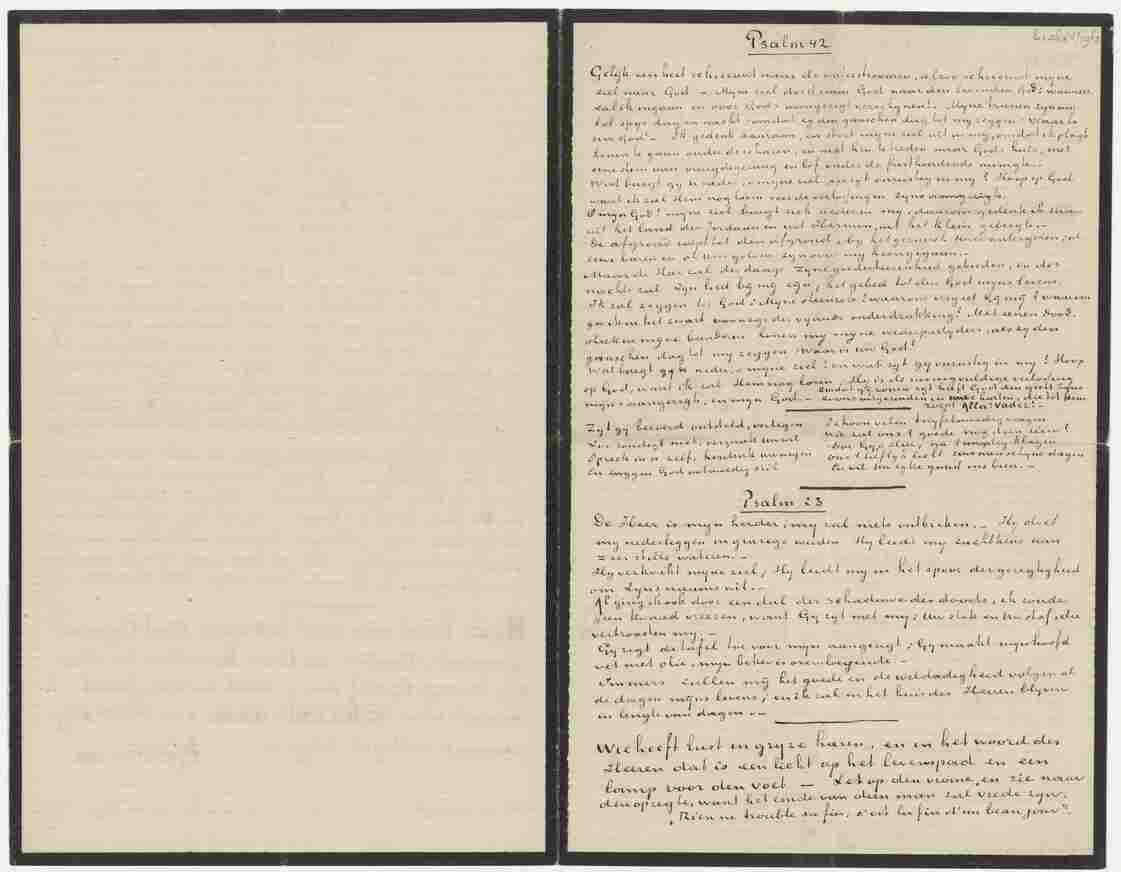 Psalm 42
Gelijk een hert schreeuwt naar de waterstroomen, alzoo schreeuwt mijne
ziel naar God. Mijne ziel dorst naar God naar den levenden God: wanneer
zal ik ingaan en voor Gods aangezigt verschijnen! Mijne tranen zijn mij
tot spijs dag en nacht omdat zij den ganschen dag tot mij zeggen: Waar is
uw God! - Ik gedenk daaraan, en stort mijne ziel uit in mij, omdat ik plagt
henen te gaan onder de scharen, en met hen te treden naar Gods huis, met
eene stem van vreugdegezang en lof, onder de feesthoudende menigte. -
Wat buigt gij u neder, o mijne ziel, en zijt onrustig in mij! Hoop op God
want ik zal Hem nog loven voor de verlossingen Zijns aangezigts.
O mijn God! mijne ziel buigt zich neder in mij, daarom gedenk ik Uwer
uit het land der Jordaan en uit Hermon, uit het klein gebergte. -
De afgrond roept tot den afgrond bij het gedruisch Uwer watergoten; al
Uwe baren en al Uwe golven zijn over mij heengegaan. -
Maar de Heer zal des daags Zijne goedertierenheid gebieden, en des
nachts zal Zijn lied bij mij zijn, het gebed tot den God mijns levens.
Ik zal zeggen tot God: Mijne steenrots! waarom vergeet Gij mij! waarom
ga ik in het zwart vanwege des vijands onderdrukking! Met eenen dood-
steek in mijne beenderen honen mij mijne wederpartijders, als zij den
ganschen dag tot mij zeggen: Waar is uw God!
Wat buigt gij u neder, o mijne ziel! en wat zijt gij onrustig in mij! Hoop
op God, want ik zal Hem nog loven; Hij is de menigvuldige verlossing
mijns aangezigts, en mijn God. -
omdat gij zonen zijt heeft God den geest Zijns
Zoons uitgezonden in uwe harten, die tot Hem
roept Abba! Vader! -
Zijt gij beroerd ontsteld, verlegen
Zoo zondigt niet, verzaad onrust
Spreek in u zelf, herdenk uw wegen
En zwijgen God ootmoedig stil
Schoon velen twijfelmoedig vragen
wie zal ons 't goede nog doen zien!
ons 't lieflijk licht
Psalm 23
De Heer is mijn herder; mij zal niets ontbreken. - Hij doet
mij nederleggen in grazige weiden Hij leidt mij zachtkens aan
zeer stille wateren. -
Hij verkwikt mijne ziel; Hij leidt mij in het spoor der geregtigheid
om Zijns naams wil. -
Al ging ik ook door een dal der schaduwe des doods, ik zoude
geen kwaad vreezen, want Gij zijt met mij; Uw stok en Uw staf, die
vertroosten mij. -
Gij rigt de tafel toe voor mijn aangezigt; Gij maakt mijn hoofd
vet met olie, mijn beker is overvloeijende. -
Immers zullen mij het goede en de weldadigheid volgen al
de dagen mijns levens; en ik zal in het huis des Heeren blijven
in lengte van dagen. -
Wie heeft lust in grijze haren, en in het woord des
Heeren dat is een licht op het levenspad en een
lamp voor den voet - Let op den vrome, en zie naar
den opregte, want het einde van dien man zal vrede zijn.
„Rien ne trouble sa fin, c'est la fin d'un beau jour".